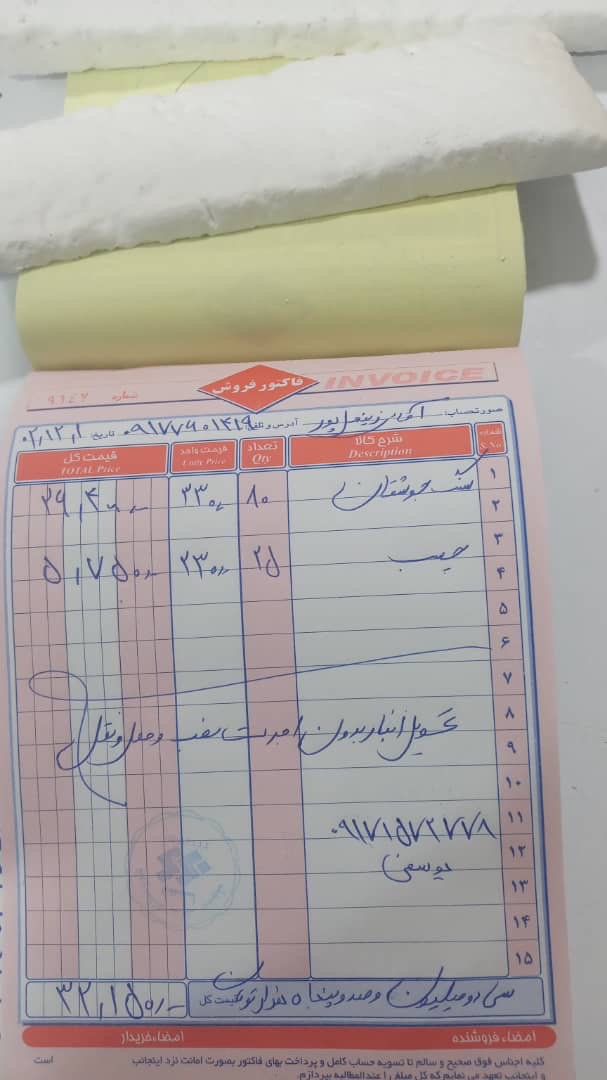 INVOICE
فاکتور فروش
شماره ۹۶۴۷
صورتحساب: آقای پور آدرس و تلفن ۰۹۱۷۷۶۰۱۴۱۹ تاریخ ۰۲٫۱۲٫۱
شماره S.No شرح کالا Description تعداد Qty قیمت واحد Unit Price قیمت کل TOTAL Price
۱ سنگ جوشقان ۸۰ ۳۳۰٫۰۰ ۲۶٫۴۰۰٫۰۰
۲
۳ چسب ۲۵ ۲۳۰٫۰۰ ۵٫۷۵۰٫۰۰
۴
۵
۶
۷
۸ تحویل انبار بدون اجرت نصب و حمل و نقل
۹
۱۰
۱۱ ۰۹۱۷۱۵۷۲۷۷۸
۱۲ یوسفی
۱۳
۱۴
۱۵
سی و دو میلیون و صد و پنجاه هزار تومان قیمت کل ۳۲٫۱۵۰٫۰۰
امضاء فروشنده امضاء خریدار
کلیه اجناس فوق صحیح و سالم تا تسویه حساب کامل و پرداخت بهای فاکتور بصورت امانت نزد اینجانب است
و اینجانب تعهد می نمایم که کل مبلغ را عندالمطالبه بپردازم.